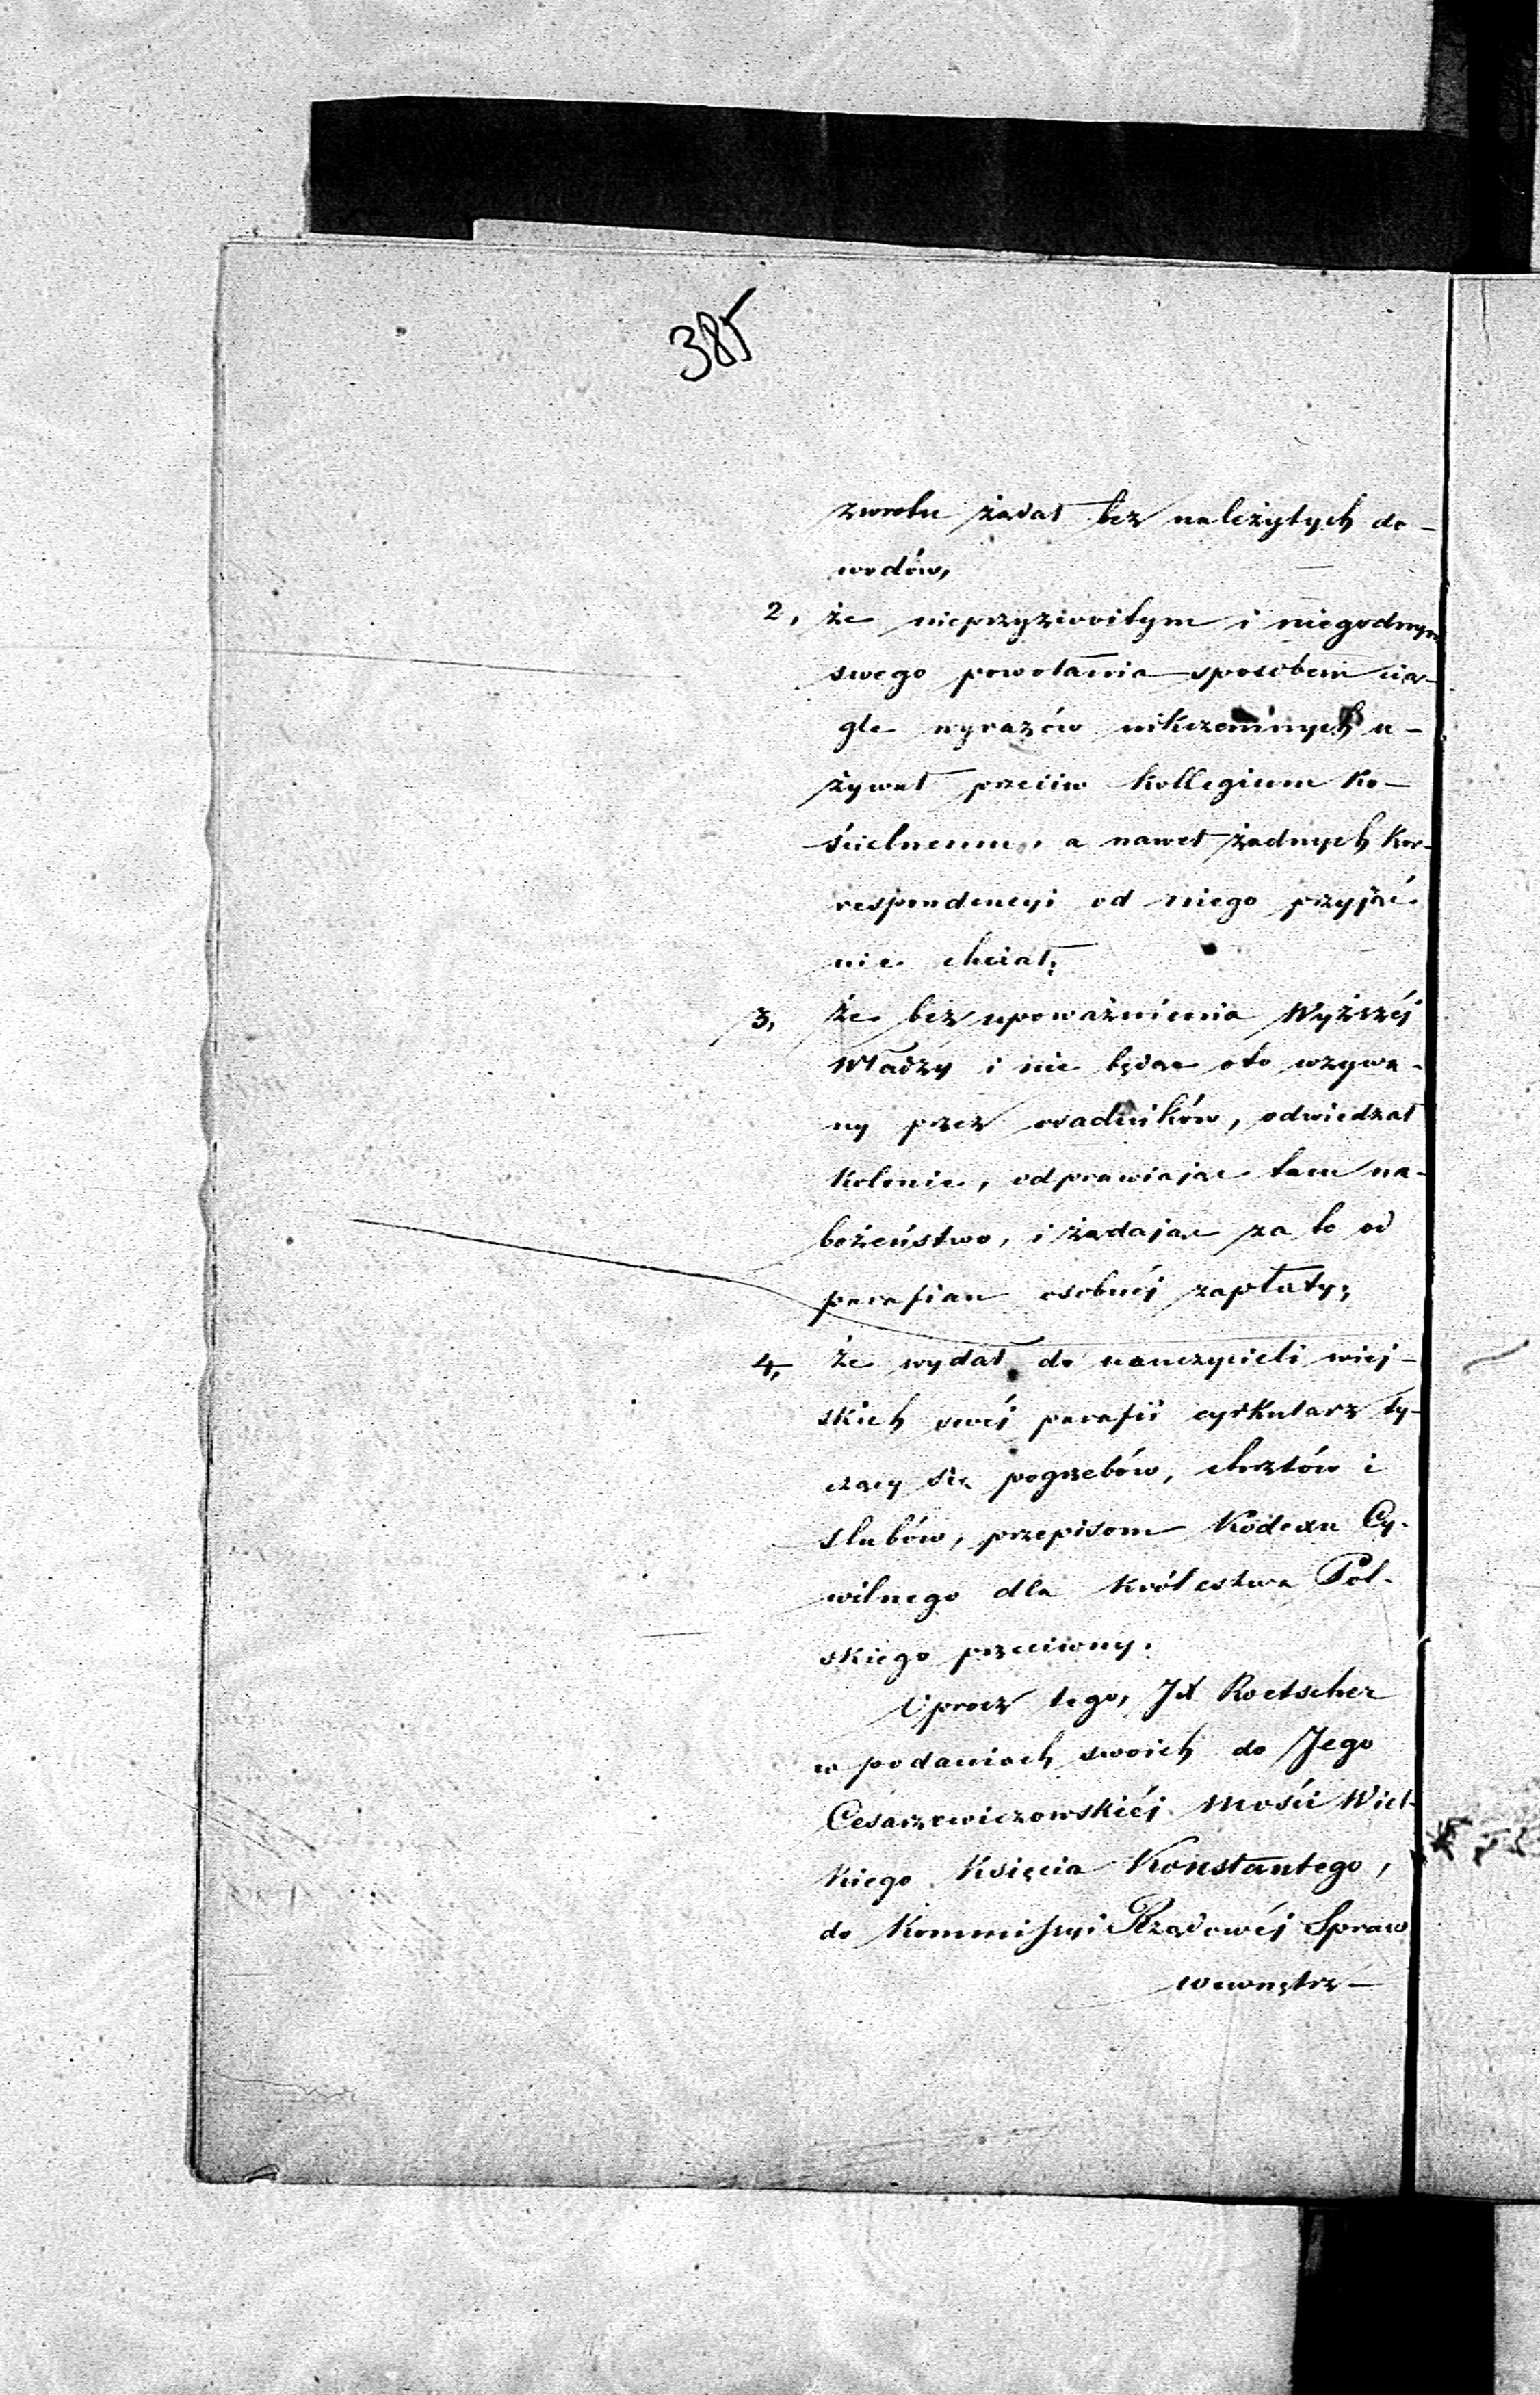 385
zwrotu żądał bez należytych do-
wodów,
2, że nieprzyzwoitym i niegodnym
swego powołania sposobem cią-
gle wyrazów nikczemnych u-
żywał przeciw Kollegium Ko-
ścielnemu, a nawet żadnych kor-
respondencyi od niego przyjąć
nie chciał;
3, że bez upoważnienia Wyższéj
Władzy i nie będąc oto wzywa-
ny przez osadników, odwiedzał
Kolonie, odprawiając tam na-
bożeństwo, i żądając za to od
parafian osobnéj zapłaty;
4, że wydał do nauczycieli wiej-
skich swéj parafii cyrkularz ty-
czący się pogrzebów, chrztów i
slubów, przepisom Kodexu Cy-
wilnego dla Królestwa Pol-
skiego przeciwny.
Oprócz tego, JX Roetscher
w podaniach swoich do Jego
Cesarzewiczowskiéj Mości Wiel-
kiego Księcia Konstantego,
do Kommissyi Rządowéj Spraw
wewnętrz-